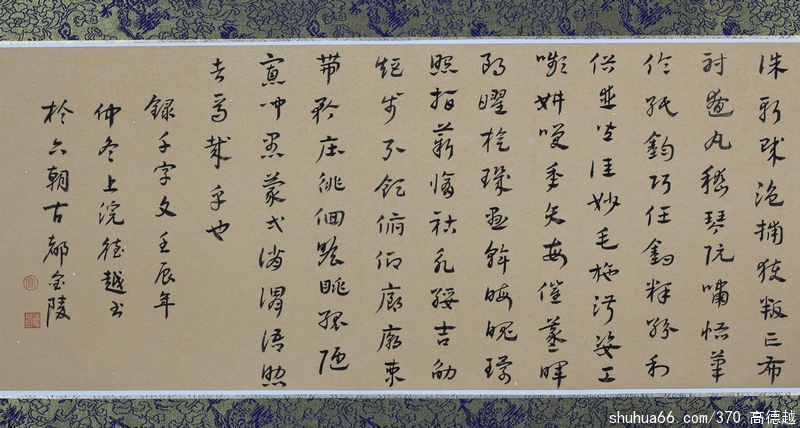 誅斬賊盜捕獲叛亡布
射遼丸嵇琴阮嘯恬筆
倫紙鈞巧任釣釋紛利
俗並皆佳妙毛施淑姿工
嚬妍咲年矢每催曦暉
朗曜旋璣懸斡晦魄環
照指薪修祜永綏吉劭
矩步引領俯仰廊廟束
帶矜莊徘徊瞻眺孤陋
寡聞愚蒙等誚謂語助
者焉哉乎也
錄千字文壬辰年
仲冬上浣德越書
於六朝古都金陵
shuhua66.com/370 高德越